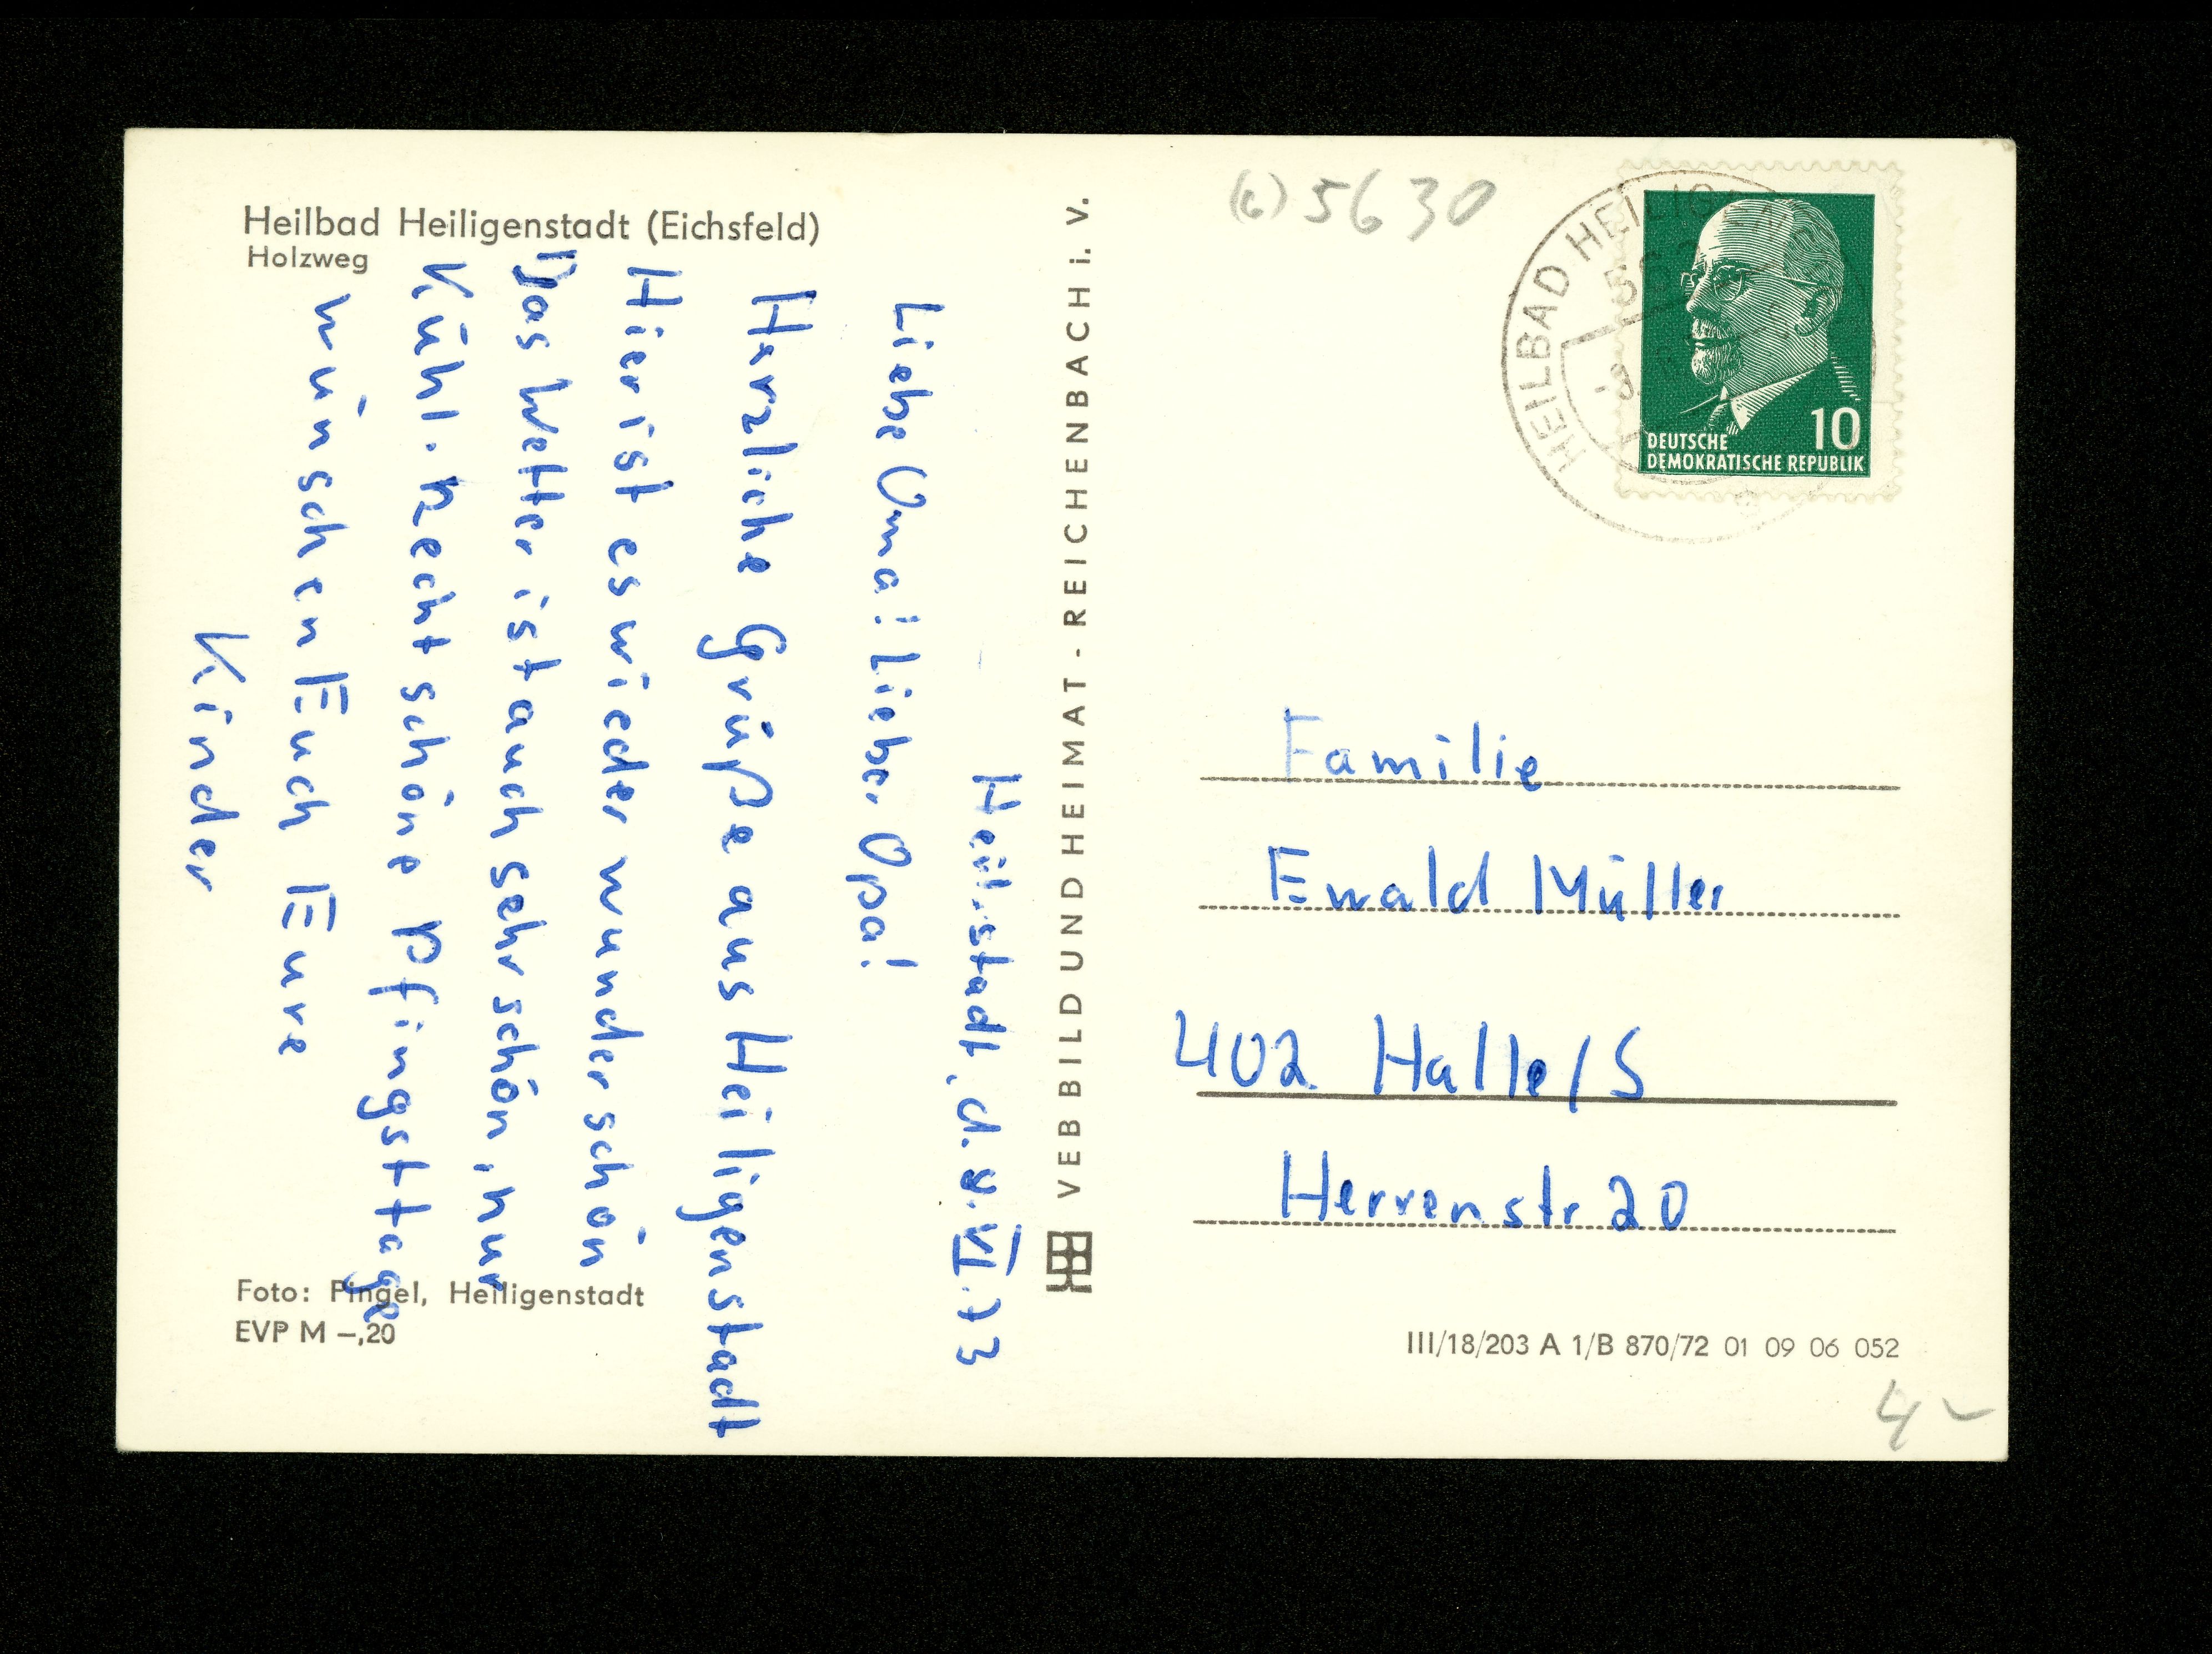 Heilbad Heiligenstadt (Eichsfeld)
Holzweg
Heil.stadt, d. 8.VI.73
Liebe Oma! Lieber Opa!
Herzliche Grüße aus Heiligenstadt
Hier ist es wieder wunderschön
Das Wetter ist auch sehr schön, nur
Kühl. Recht schöne Pfingsttage
wünschen Euch Eure
Kinder
Foto: Pingel, Heiligenstadt
EVP M –,20
VEB BILD UND HEIMAT - REICHENBACH i. V.
5630
HEILBAD HEILIGEN
DEUTSCHE
DEMOKRATISCHE REPUBLIK
10
Familie
Ewald Müller
402 Halle/S
Herrenstr 20
III/18/203 A 1/B 870/72 01 09 06 052
4